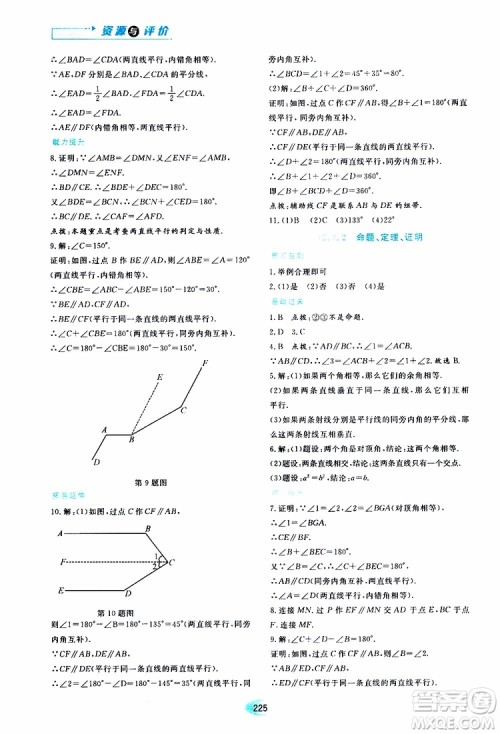 资源与评价
∴∠BAD=∠CDA(两直线平行,内错角相等).
∵AE、DF分别是∠BAD、∠CDA的平分线,
∴∠EAD=1/2∠BAD,
∴∠ADF=1/2∠CDA,
∴∠EAD=∠ADF,
∴AE∥DF(内错角相等,两直线平行).
能力提升
8.证明:∵∠AMB=∠DMN,又∠ENF=∠AMB,
∴∠DMN=∠ENF,
∴BD∥CE.
∴∠BDE+∠DEC=180°.
又∠BDE=∠BCN,
∴∠BCN+∠CED=180°,
∴BC∥DE,∴∠CAF=∠AFD.
点拨:本题重点是考查两直线平行的判定与性质.
9.解:∠C=150°.
证明:如答图,过点B作BE∥AD,则∠ABE=∠A=120°
(两直线平行,内错角相等).
∴∠CBE=∠ABC-∠ABE=150°-120°=30°.
∵BE∥AD,CF∥AD,
∴BE∥CF(平行于同一条直线的两直线平行).
∴∠C+∠CBE=180°(两直线平行,同旁内角互补).
∴∠C=180°-∠CBE=180°-30°=150°.
F
E
C
A
B
D
第9题图
10.解:(1)如图,过点C作CF∥AB,
A
B
F
1
2
C
E
D
第10题图
则∠1=180°-∠B=180°-135°=45°(两直线平行,同旁
内角互补).
∵CF∥AB,DE∥AB,
∴CF∥DE(平行于同一条直线的两直线平行).
∴∠2=180°-∠D=180°-145°=35°(两直线平行,同
旁内角互补).
∴∠BCD=∠1+∠2=45°+35°=80°.
(2)解:∠B+∠C+∠D=360°.
证明:如图,过点C作CF∥AB,得∠B+∠1=180°(两
直线平行,同旁内角互补).
∵CF∥AB,DE∥AB,
∴CF∥DE(平行于同一条直线的两直线平行).
∴∠D+∠2=180°(两直线平行,同旁内角互补).
∴∠B+∠1+∠2+∠D=360°.
即∠B+∠BCD+∠D=360°.
点拨:辅助线CF是联系AB、DE的纽带.
11.(1)62° (2)2° (3)133° (4)22°
命题、定理、证明
1.举例合理即可
2.(1)是 (2)是 (3)否
基础过关
1.B 点拨:②③不是命题.
2.D 3.C
4.B 点拨:∵AD∥BC,∴∠1=∠2.
∵AB∥CD,∴∠1=∠3.∴∠2=∠3.故选B.
5.解:(1)如果两个角相等,那么它们的余角相等.
(2)如果两条直线垂直于同一条直线,那么这两条直
线平行.
(3)如果两射线分别是平行线的同旁内角的平分线,
那么这两条射线垂直.
6.解:(1)题设:两个角是对顶角,结论:这两个角相等.
(2)题设:两条直线平行,结论:同位角相等.
(3)题设:a²=b²,结论:a=b.
7.证明:∵∠1=∠2,∠2=∠BGA(对顶角相等),
∴∠1=∠BGA.
∴AF∥DE(同位角相等,两直线平行).
∴∠A+∠AED=180°(两直线平行,同旁内角互补).
∵∠A=∠D,∴∠AED+∠D=180°.
∴AB∥CD(同旁内角互补,两直线平行).
∴∠B=∠C(两直线平行,内错角相等).
9.解:∵∠1+∠2=180°,
225